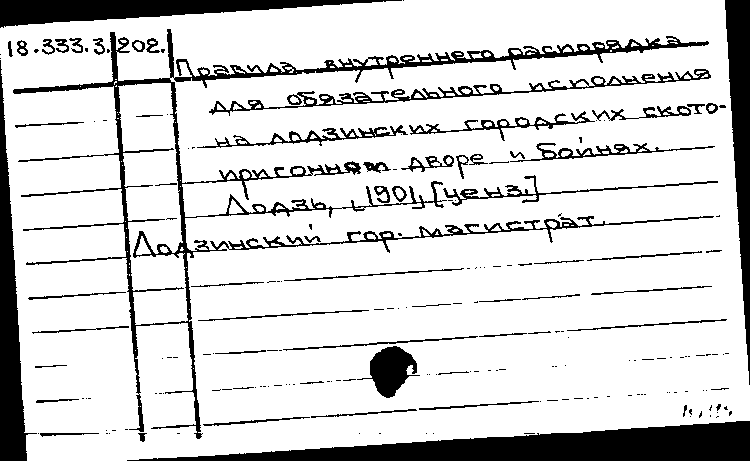 18.333.3.202.
Правила внутреннего распорядка
для обязательного исполнения
на лодзинских городских ското-
пригонном дворе и бойнях.
Лодзь, [1901, [ценз.]
Лодзинский гор. магистрат.